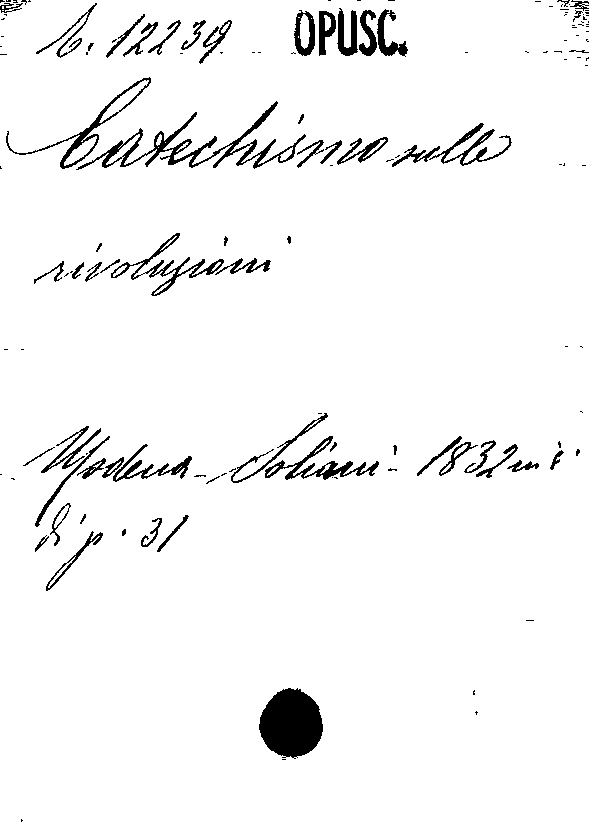 12239 OPUSC.
Catechismo sulle
rivoluzioni
Modena - Soliani - 1832 in
di p. 31